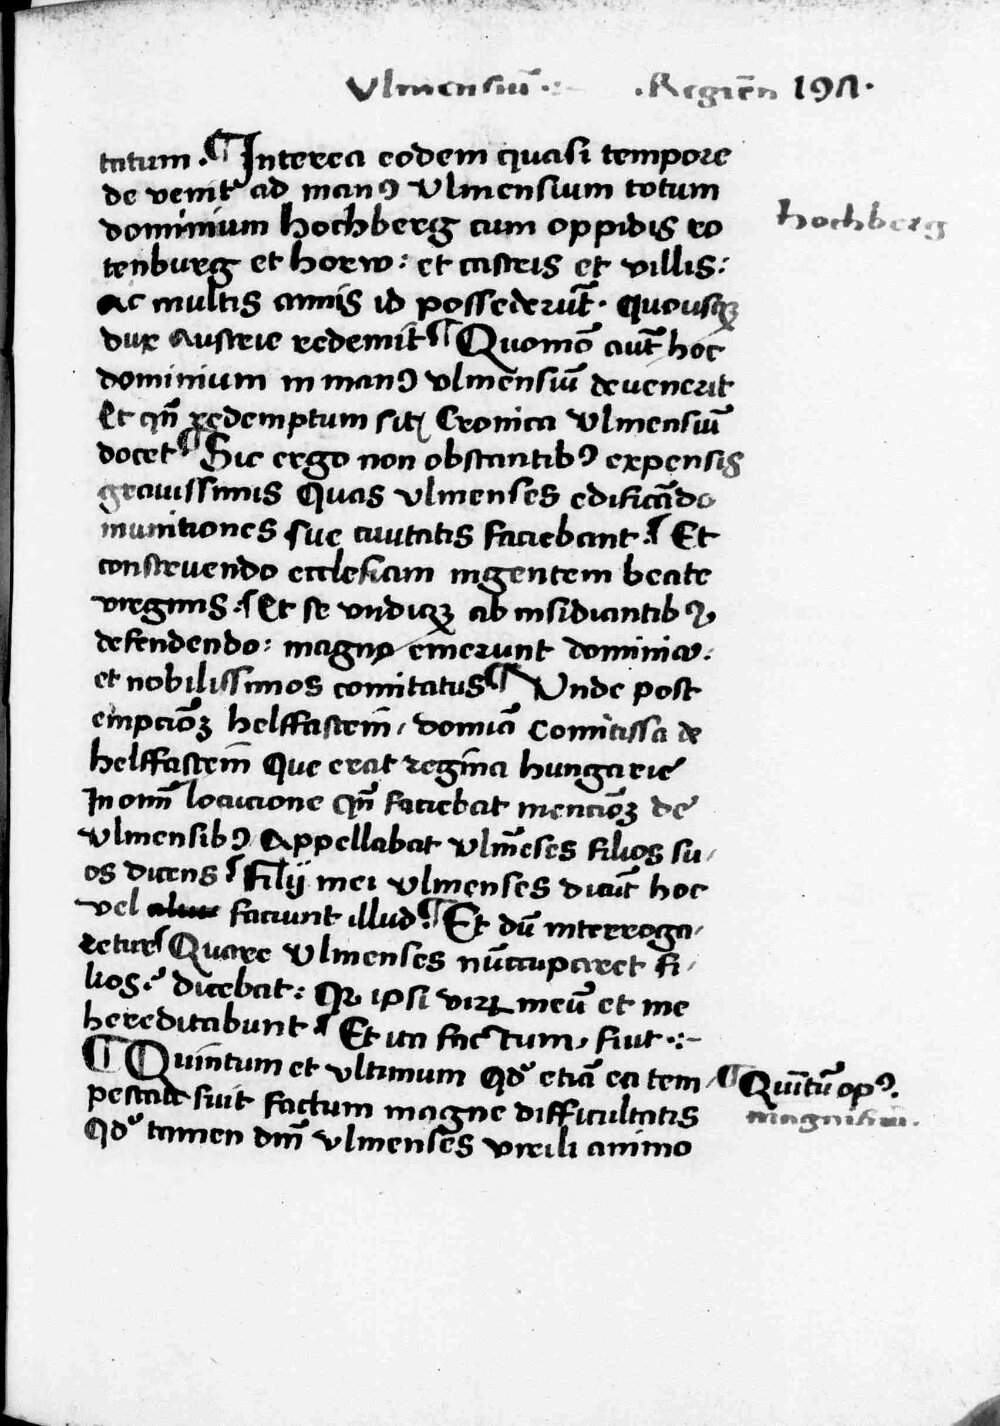 Vlmensiū · Regiēn 191 ·
tatum · ¶ Interea eodem quasi tempore
de venit ad manꝰ Vlmensium totum
dominium hochberg cum oppidis ro
hochberg
tenburg et horw : et castris et villis :
Ac multis annis id possederūt · Quousqꝫ
dux Austrie redemit ¶ Quomō aūt hoc
dominium in manꝰ vlmensiū devenerit
Et qn̄ redemptum sit Cronica Vlmensiū
docet ¶ Sic ergo non obstantibꝰ expensis
gravissimis Quas vlmenses edificādo
munitiones sue civitatis faciebant : Et
construendo ecclesiam ingentem beate
virginis : Et se vndiqꝫ ab insidiantibꝰ
defendendo : magna emerunt dominia :
et nobilissimos comitatus ¶ Vnde post
empciōꝫ helffastein̄ , domīa Comitissa de
helffastein̄ Que erat regīna hungarie
In omī locucione qn̄ faciebat menciōꝫ de
Vlmensibꝰ Appellabat vlm̄eses filios su
os dicens : filij mei vlmenses dicūt hoc
vel faciunt illud : ¶ Et dū interroga
retur Quare Vlmenses nūccuparet fi
lios : dicebat : Qꝛ ipsi virū meū et me
hereditabunt : Et ita factum , fuit ·:-
¶ Quintum et vltimum Qd̓ etiā ea tem
¶ Quītū opꝰ .
pestate fuit factum magne difficultatis
magnificū .
Qd̓ tamen dn̄i Vlmenses virili animo